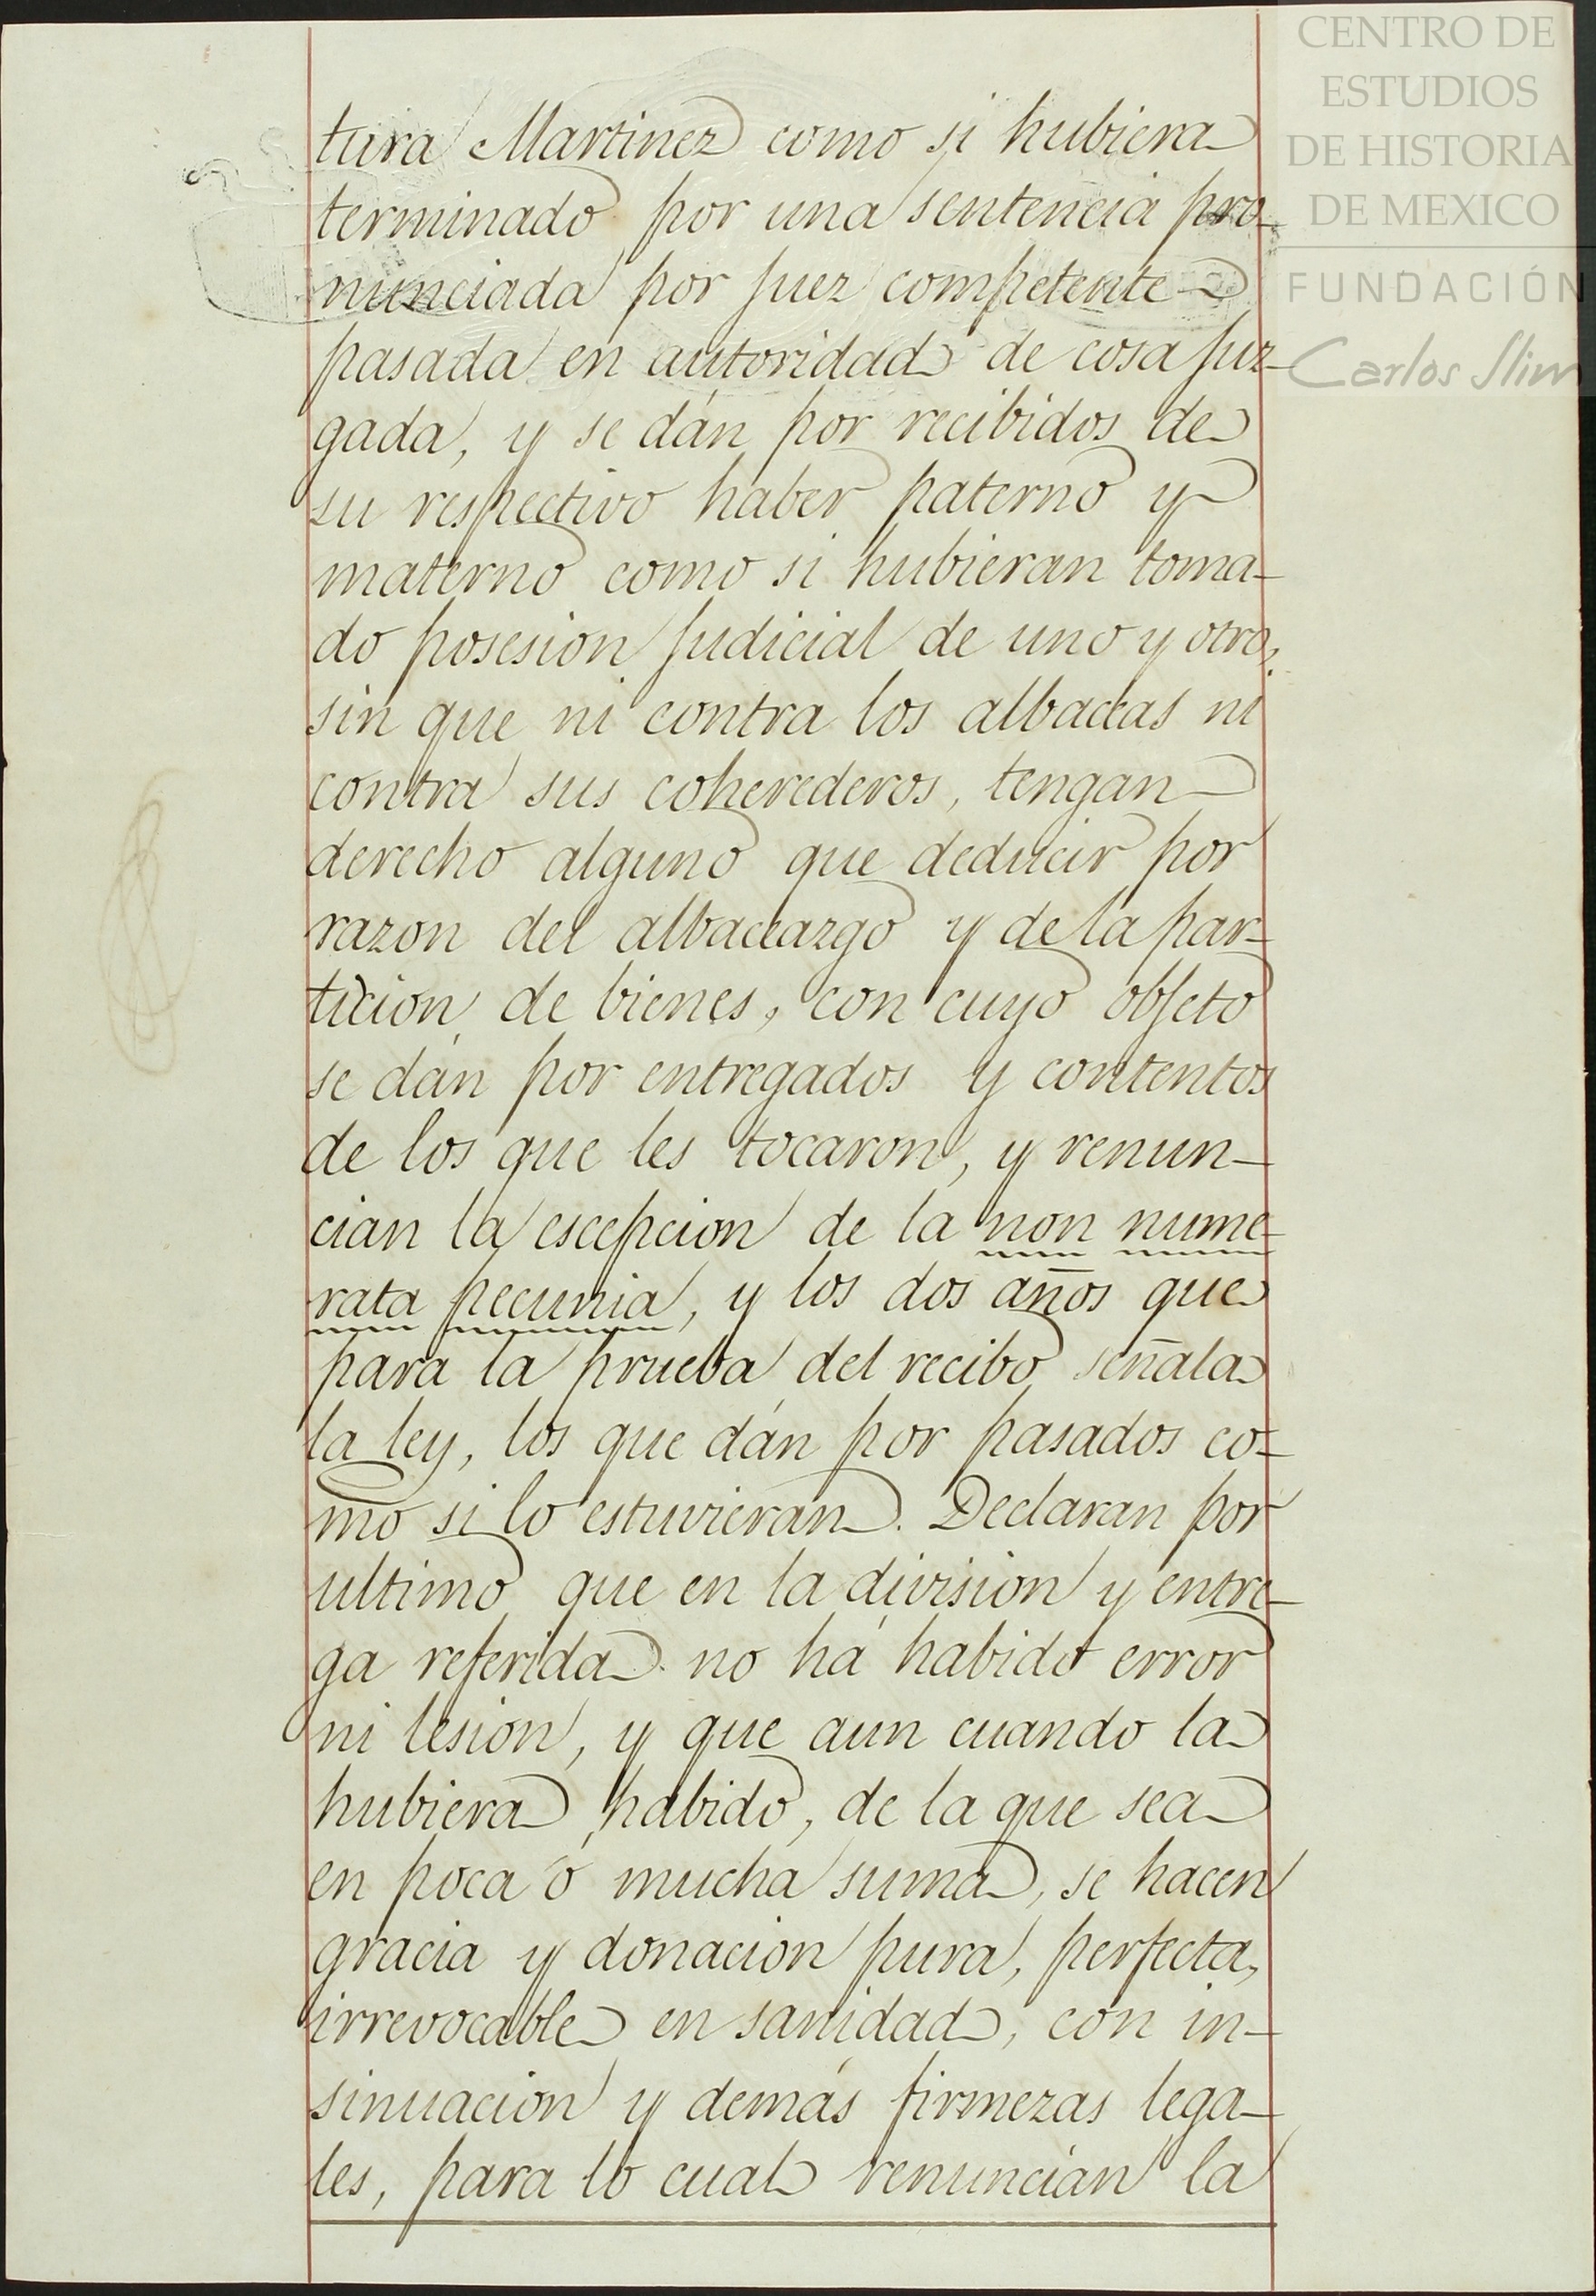 tura Martinez como si hubiera
terminado por una sentencia pro-
nunciada por juez competente
pasada en autoridad de cosa juz-
gada, y se dán por recibidos de
su respectivo haber paterno y
materno como si hubieran toma-
do posesion judicial de uno y otro,
sin que ni contra los albaceas ni
contra sus coherederos, tengan
derecho alguno que deducir por
razon del albaceazgo y de la par-
ticion de bienes, con cuyo objeto
se dán por entregados y contentos
de los que les tocaron, y renun-
cian la escepcion de la non nume-
rata pecunia, y los dos años que
para la prueba del recibo señala
la ley, los que dán por pasados co-
mo si lo estuvieran. Declaran por
ultimo que en la division y entre-
ga referida no há habido error
ni lesion, y que aun cuando la
hubiera habido, de la que sea
en poca ó mucha suma, se hacen
gracia y donacion pura, perfecta,
irrevocable en sanidad, con in-
sinuacion y demás firmezas lega-
les, para lo cual renuncian la
CENTRO DE
ESTUDIOS
DE HISTORIA
DE MEXICO
FUNDACIÓN
Carlos Slim